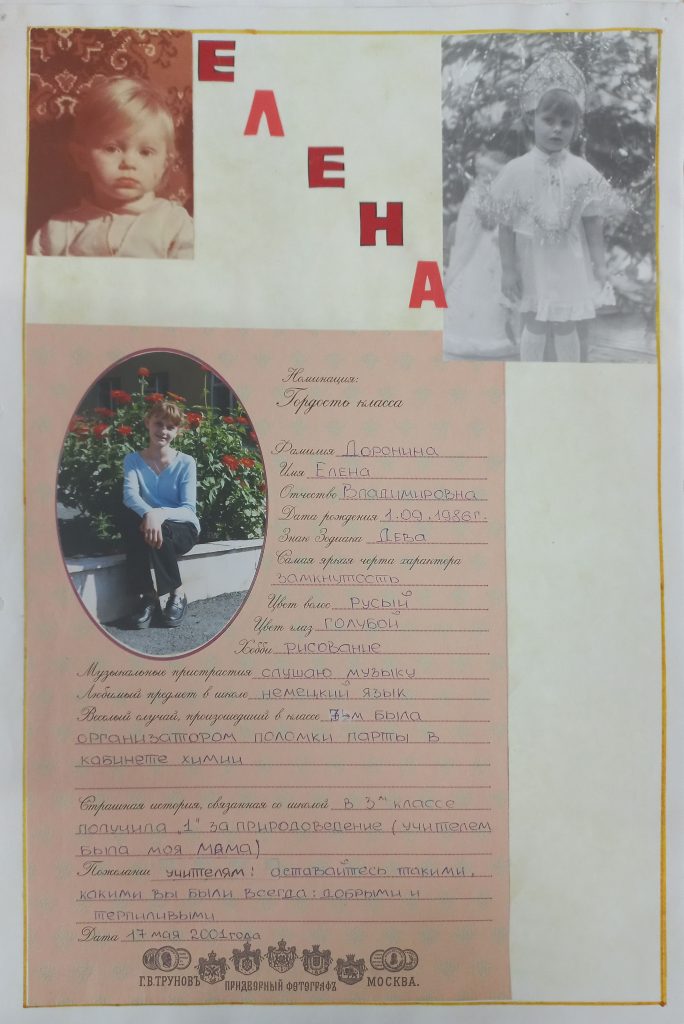 ЕЛЕНА
Номинация:
Гордость класса
Фамилия Доронина
Имя Елена
Отчество Владимировна
Дата рождения 1.09.1986г.
Знак Зодиака Дева
Самая яркая черта характера
замкнутость
Цвет волос русый
Цвет глаз голубой
Хобби рисование
Музыкальные пристрастия слушаю музыку
Любимый предмет в школе немецкий язык
Веселый случай, произошедший в классе, была
организатором поломки парты в
кабинете химии
Страшная история, связанная со школой, в 3м классе
получила „1" за природоведение (учителем
была моя мама)
Пожелание учителям: оставайтесь такими,
какими вы были всегда: добрыми и
терпиливыми
Дата 17 мая 2001года
Г.В.ТРУНОВЪ ПРИДВОРНЫЙ ФОТОГРАФЪ МОСКВА.